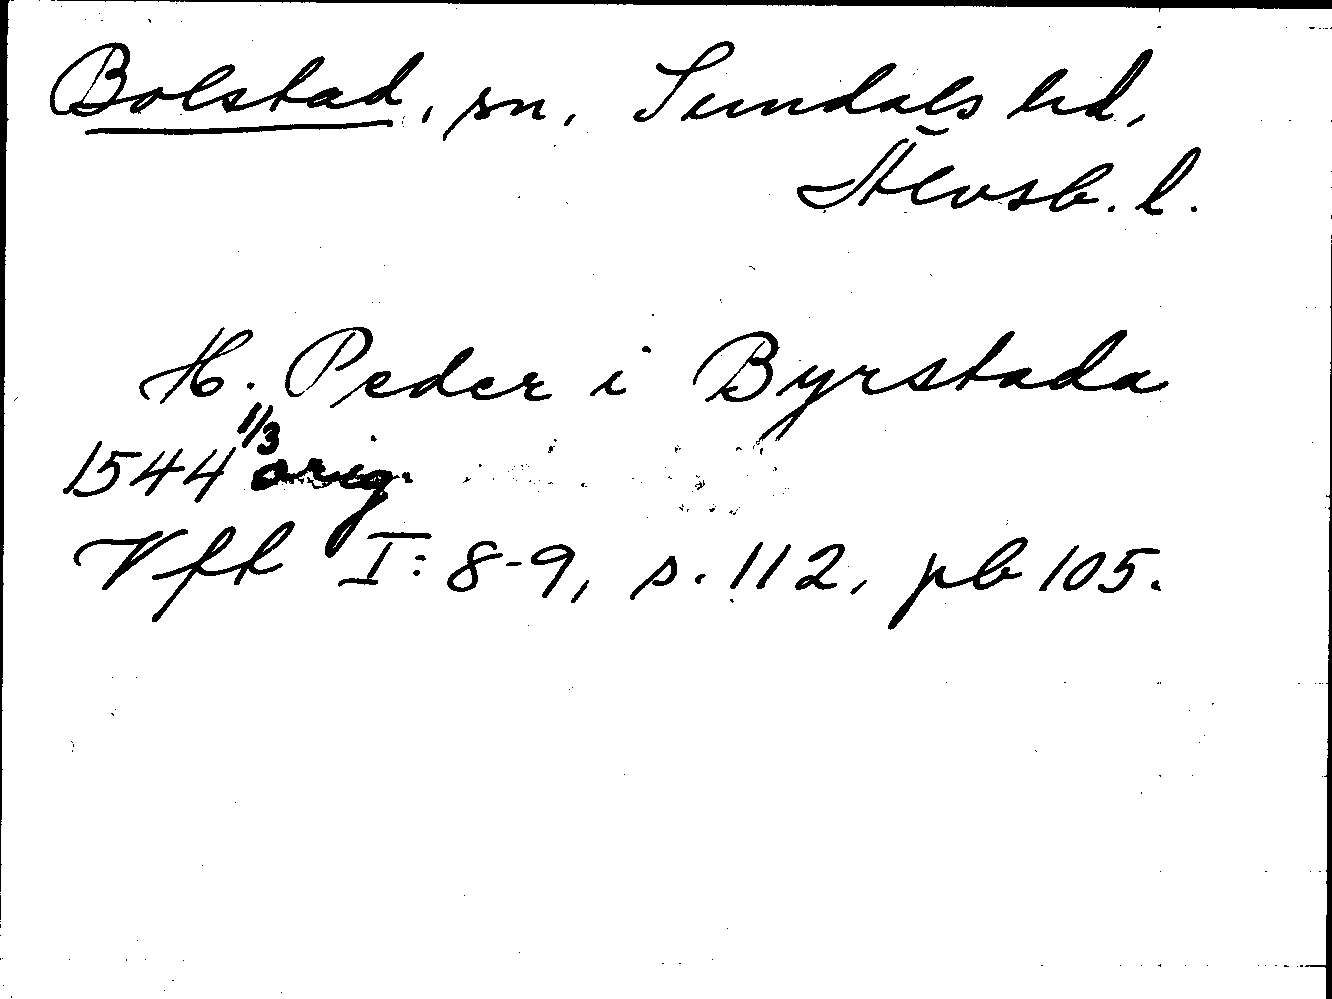 Bolstad, sn, Sundals hd,
Älvsb. l.
H. Peder i Byrstada
1544 1/3 orig.
Vfft I: 8-9, s. 112, pb 105.